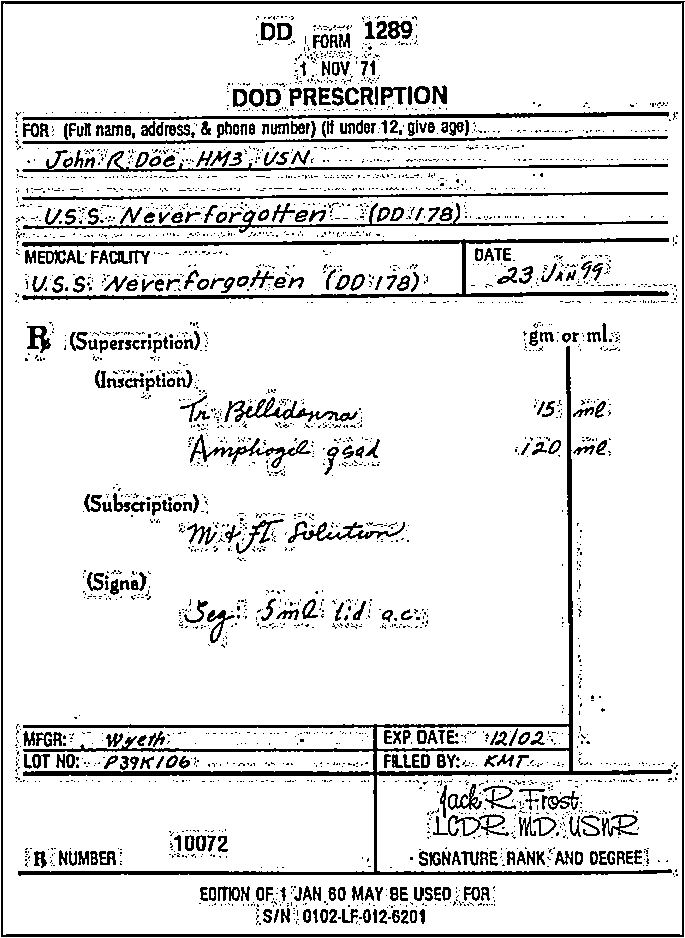 DD FORM 1289
1 NOV 71
DOD PRESCRIPTION
FOR: (Full name, address, & phone number) (If under 12, give age)
John R. Doe, HM3, USN
U.S.S. Neverforgotten (DD 178)
MEDICAL FACILITY
DATE
U.S.S. Neverforgotten (DD 178)
23 JAN 99
℞ (Superscription)
gm or ml.
(Inscription)
Tr Belladonna 15 ml
Amphogel qsad 120 ml
(Subscription)
M & ft Solution
(Signa)
Sig: 5 ml tid a.c.
MFGR: Wyeth
EXP DATE: 12/02
LOT NO: P39K106
FILLED BY: KMT
Jack R. Frost
LCDR, MD, USNR
10072
℞ NUMBER
SIGNATURE RANK AND DEGREE
EDITION OF 1 JAN 60 MAY BE USED FOR
S/N 0102-LF-012-6201